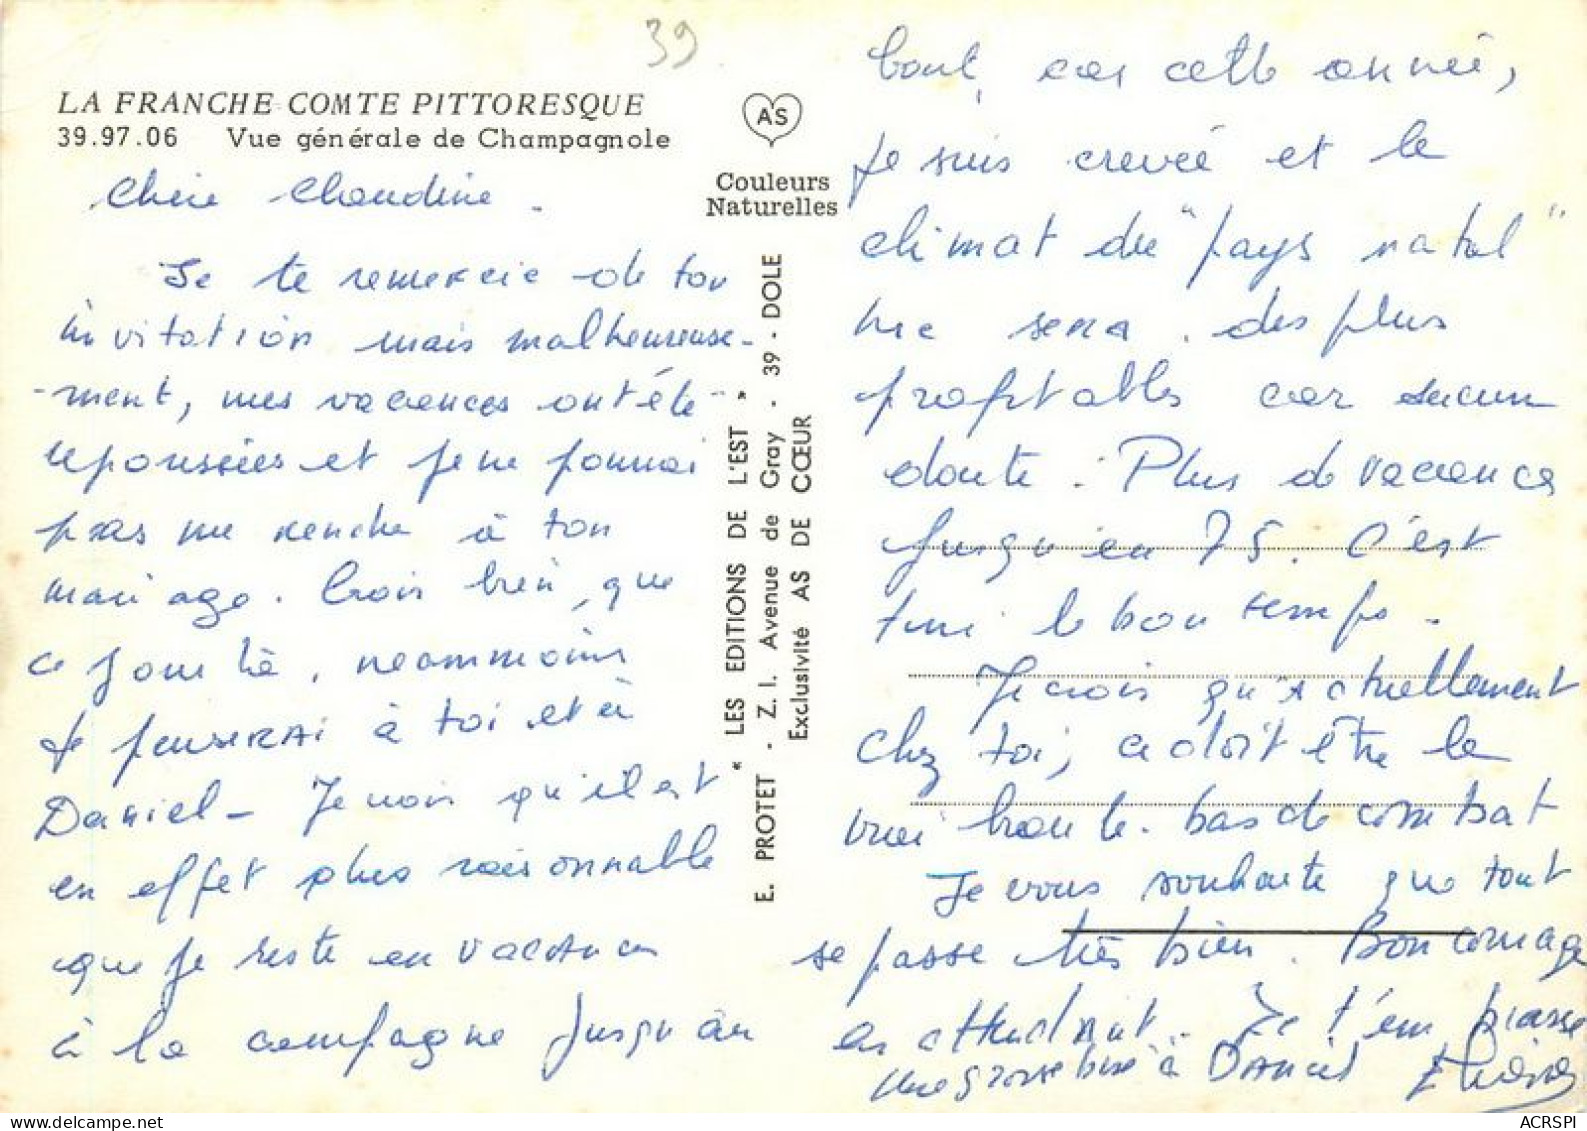 39
LA FRANCHE-COMTE PITTORESQUE
39.97.06 Vue générale de Champagnole
AS
Couleurs
Naturelles
Chère Claudine.
Je te remercie de ton
invitation mais malheureuse-
-ment, mes vacances ont été
repoussées et je ne pourrai
pas me rendre à ton
mariage. Crois bien, que
ce jour là, néammoins
je penserai à toi et à
Daniel - Je crois qu'il est
en effet plus raisonnable
que je reste en vacances
à la campagne jusqu'au
" LES EDITIONS DE L'EST "
E. PROTET - Z. I. Avenue de Gray - 39 - DOLE
Exclusivité AS DE CŒUR
bout, car cette année,
je suis crevée et le
climat du "pays natal"
me sera des plus
profitables car aucun
doute : Plus de vacances
jusqu'en 75. C'est
fini le bon temps.
Je crois qu'actuellement
chez toi, ce doit être le
vrai branle-bas de combat
Je vous souhaite que tout
se passe très bien. Bon courage
en attendant. Je t'embrasse
une grosse bise à Daniel
ACRSPI